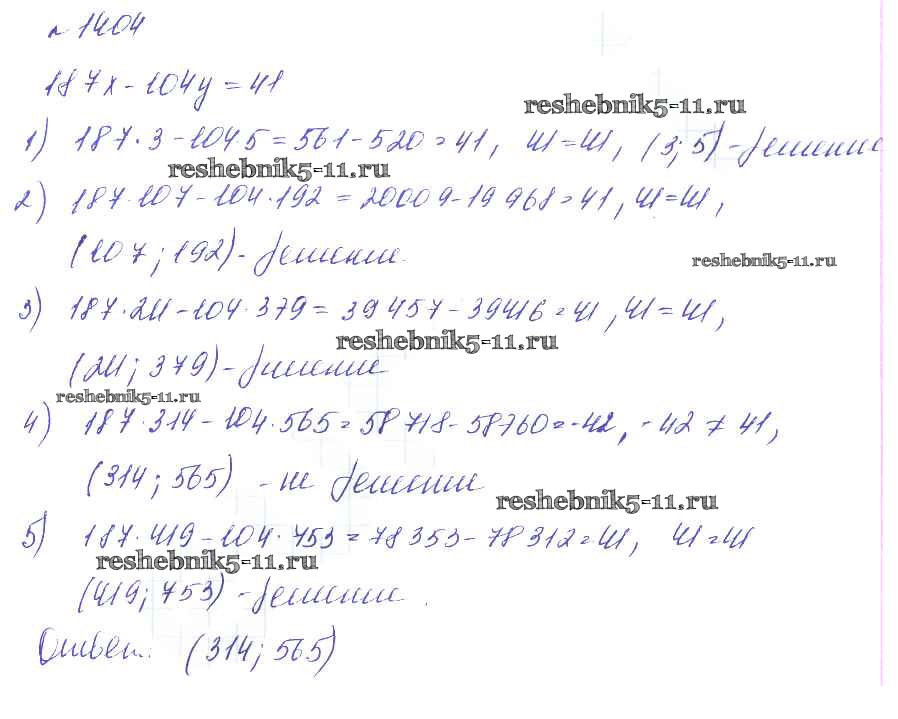 № 1404
187x - 104y = 41
reshebnik5-11.ru
1) 187·3 - 104·5 = 561 - 520 = 41, 41 = 41, (3; 5) - решение
reshebnik5-11.ru
2) 187·107 - 104·192 = 20009 - 19968 = 41, 41 = 41,
(107; 192) - решение.
reshebnik5-11.ru
3) 187·211 - 104·379 = 39457 - 39416 = 41, 41 = 41,
reshebnik5-11.ru
(211; 379) - решение
reshebnik5-11.ru
4) 187·314 - 104·565 = 58718 - 58760 = -42, -42 ≠ 41,
(314; 565) - не решение
reshebnik5-11.ru
5) 187·419 - 104·753 = 78353 - 78312 = 41, 41 = 41
reshebnik5-11.ru
(419; 753) - решение.
Ответ: (314; 565)